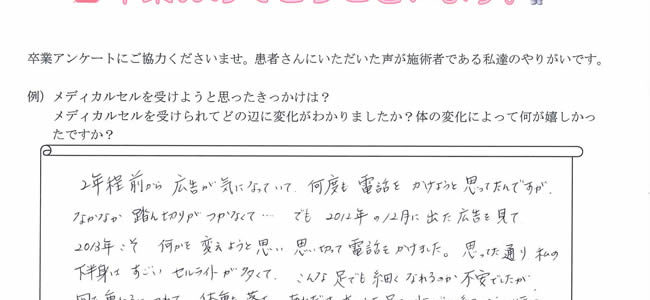 卒業おめでとうございます。
卒業アンケートにご協力くださいませ。患者さんにいただいた声が施術者である私達のやりがいです。
例）メディカルセルを受けようと思ったきっかけは？
メディカルセルを受けられてどの辺に変化がわかりましたか？体の変化によって何が嬉しかっ
たですか？
2年程前から 広告が気になっていて、何度も 電話を かけようと 思ってたんですが、
なかなか 踏ん切りが つかなくて… でも 2012年の12月に 出た 広告を 見て
2013年こそ 何かを 変えようと思い 思い切って 電話を かけました。思ってた通り 私の
下半身は すごい セルライトが 多くて、こんな 足でも 細く なれるのか 不安でしたが